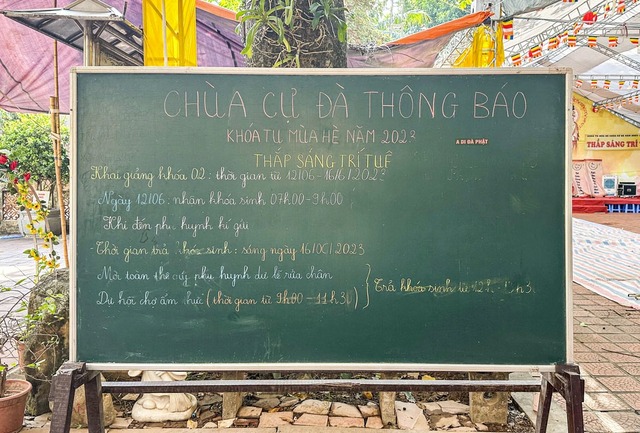 CHÙA CỰ ĐÀ THÔNG BÁO
KHÓA TU MÙA HÈ NĂM 2023
A DI ĐÀ PHẬT
THẮP SÁNG TRÍ TUỆ
Khai giảng khóa 02: thời gian từ 12/06-16/6/2023
Ngày 12/06: nhận khóa sinh 07h00-9h00
Khi đến phụ huynh kí gửi
Thời gian trả khóa sinh: sáng ngày 16/06/2023
Mời toàn thể quý phụ huynh dự lễ rửa chân
Dự hội chợ ẩm thực (thời gian từ 9h00-11h30)
Trả khóa sinh từ 12h
THẮP SÁNG TRÍ